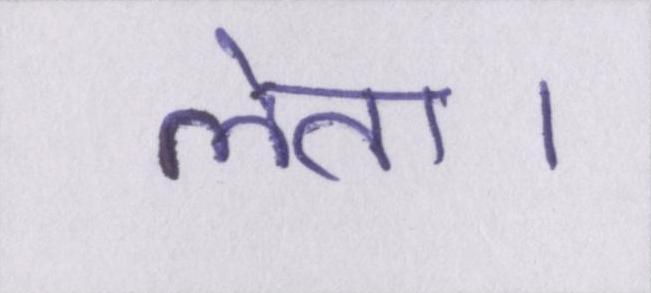 लेता ।